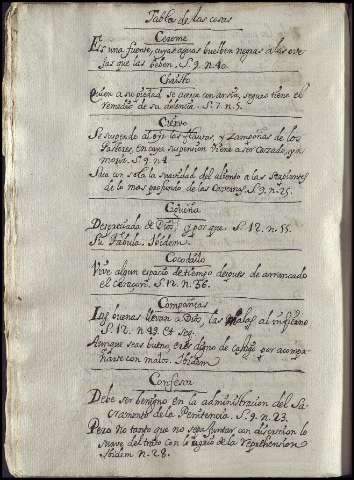 Tabla de las cosas
Cerome
Es una fuente, cuyas aguas buelben negras a las ove
jas que las beben. S. 9. n. 40.
Christo
Quien a su piedad se acoge con ansia, seguro tiene el
remedio de su dolencia. S. 7. n. 5.
Ciervo
Se suspende al oir las flautas y Zampoñas de los
Pastores, en cuya suspension viene a ser cazado, y a
morir. S. 9. n. 4
Saca con solo la suavidad del aliento a las Serpientes
de lo mas profundo de las Cavernas. S. 9. n. 25.
Cigueña
Despreciada de Dios, y por que. S. 12. n. 55.
Su Fabula. Ibidem.
Cocodrilo
Vive algun espacio de tiempo despues de arrancado
el corazon. S. 12. n. 36.
Compañias
Las buenas llevan a Dios, las Malas al infierno
S. 12. n. 49. et seq.
Aunque seas bueno eres digno de castigo por acompa
ñarte con malos. Ibidem
Confesor
Debe ser benigno en la administracion del Sa
cramento de la Penitencia. S. 9. n. 23.
Pero no tanto que no sepa juntar con discrecion lo
suave del trato con lo agrio de la reprehension
Ibidem n. 28.